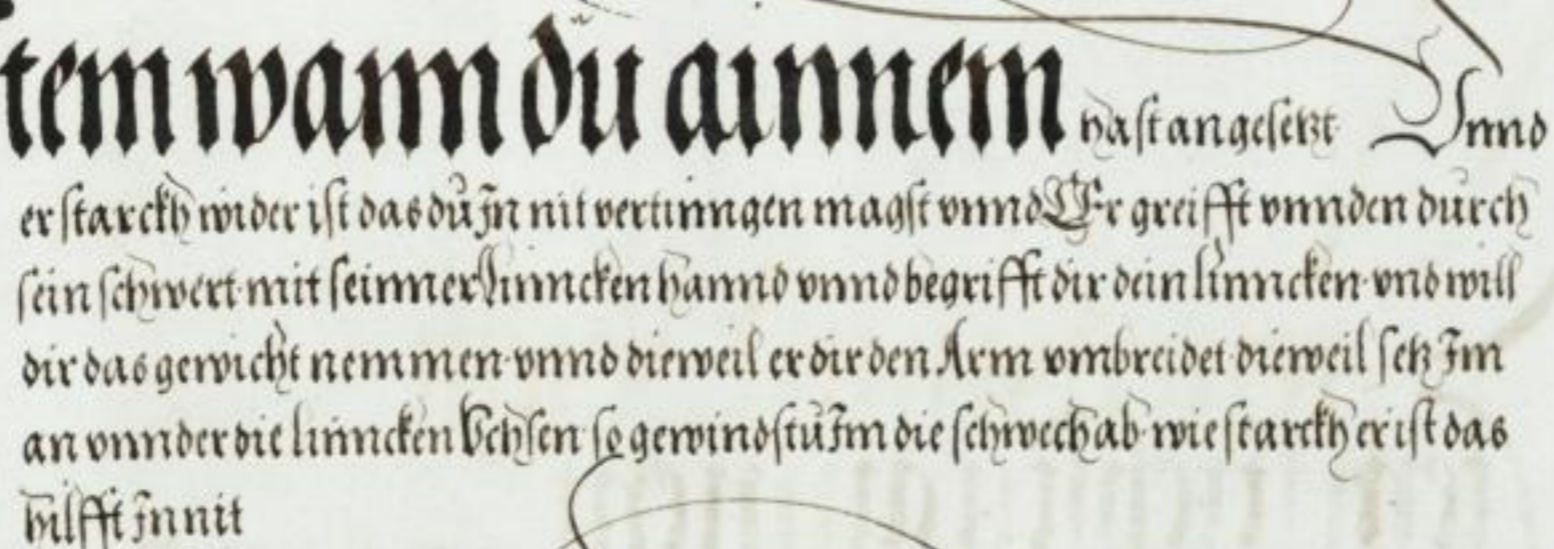 tem wann dü ainnem hast angesetzt Vnnd
er starckh wider ist das dü Jn nit vertinngen magst vnnd Er greifft vnnden durch
sein schwert mit seinner linncken hannd vnnd begrifft dir dein linncken vnd will
dir das gewicht nemmen vnnd dieweil er dir den Arm vmbreidet dieweil setz Jm
an vnnder die linncken Vchsen so gewindstü Jm die schwech ab wie starckh er ist das
hilfft Jn nit